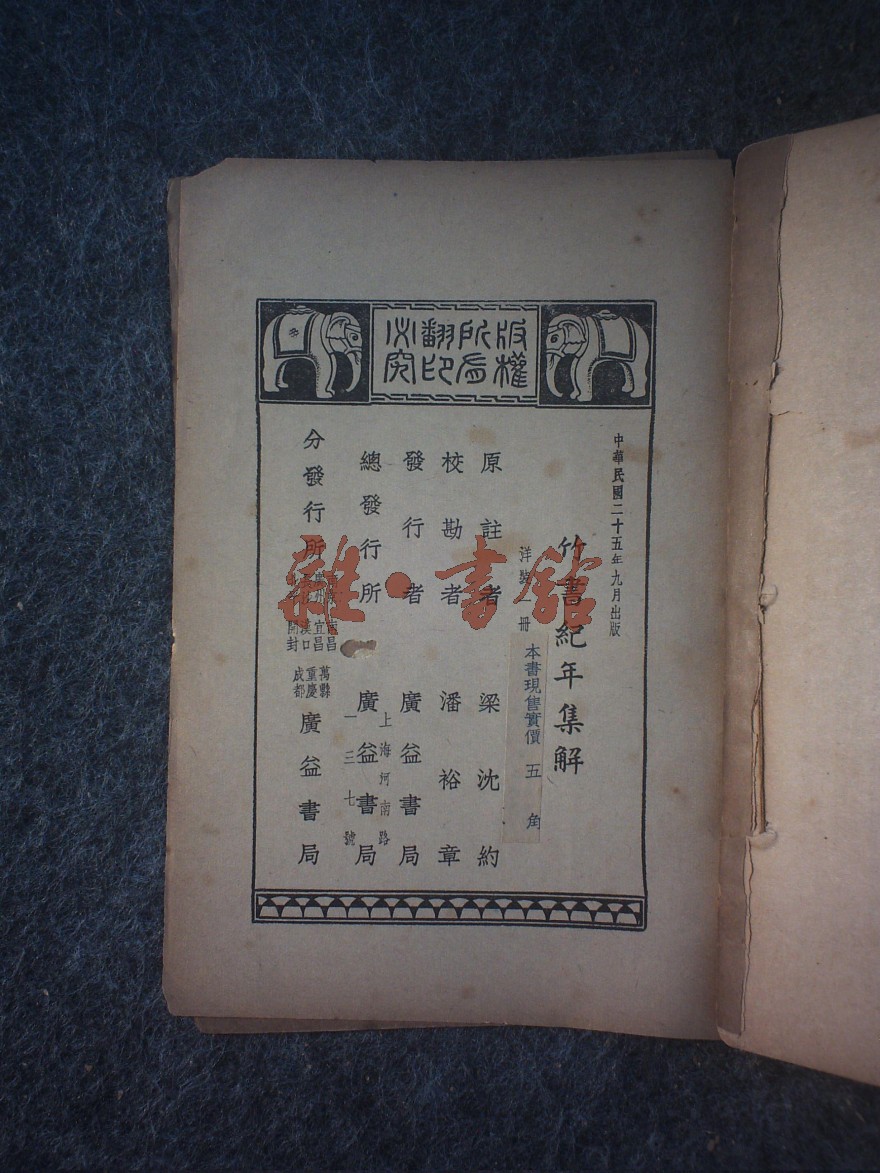 版權
所有
翻印
必究
中華民國二十五年九月出版
竹書紀年集解
洋裝一冊
本書現售實價 五角
原註者 梁沈約
校勘者 潘裕章
發行者 廣益書局
總發行所 上海河南路一三七號 廣益書局
分發行所 南昌 宜昌 漢口 開封 萬縣 重慶 成都 廣益書局
雜·書館